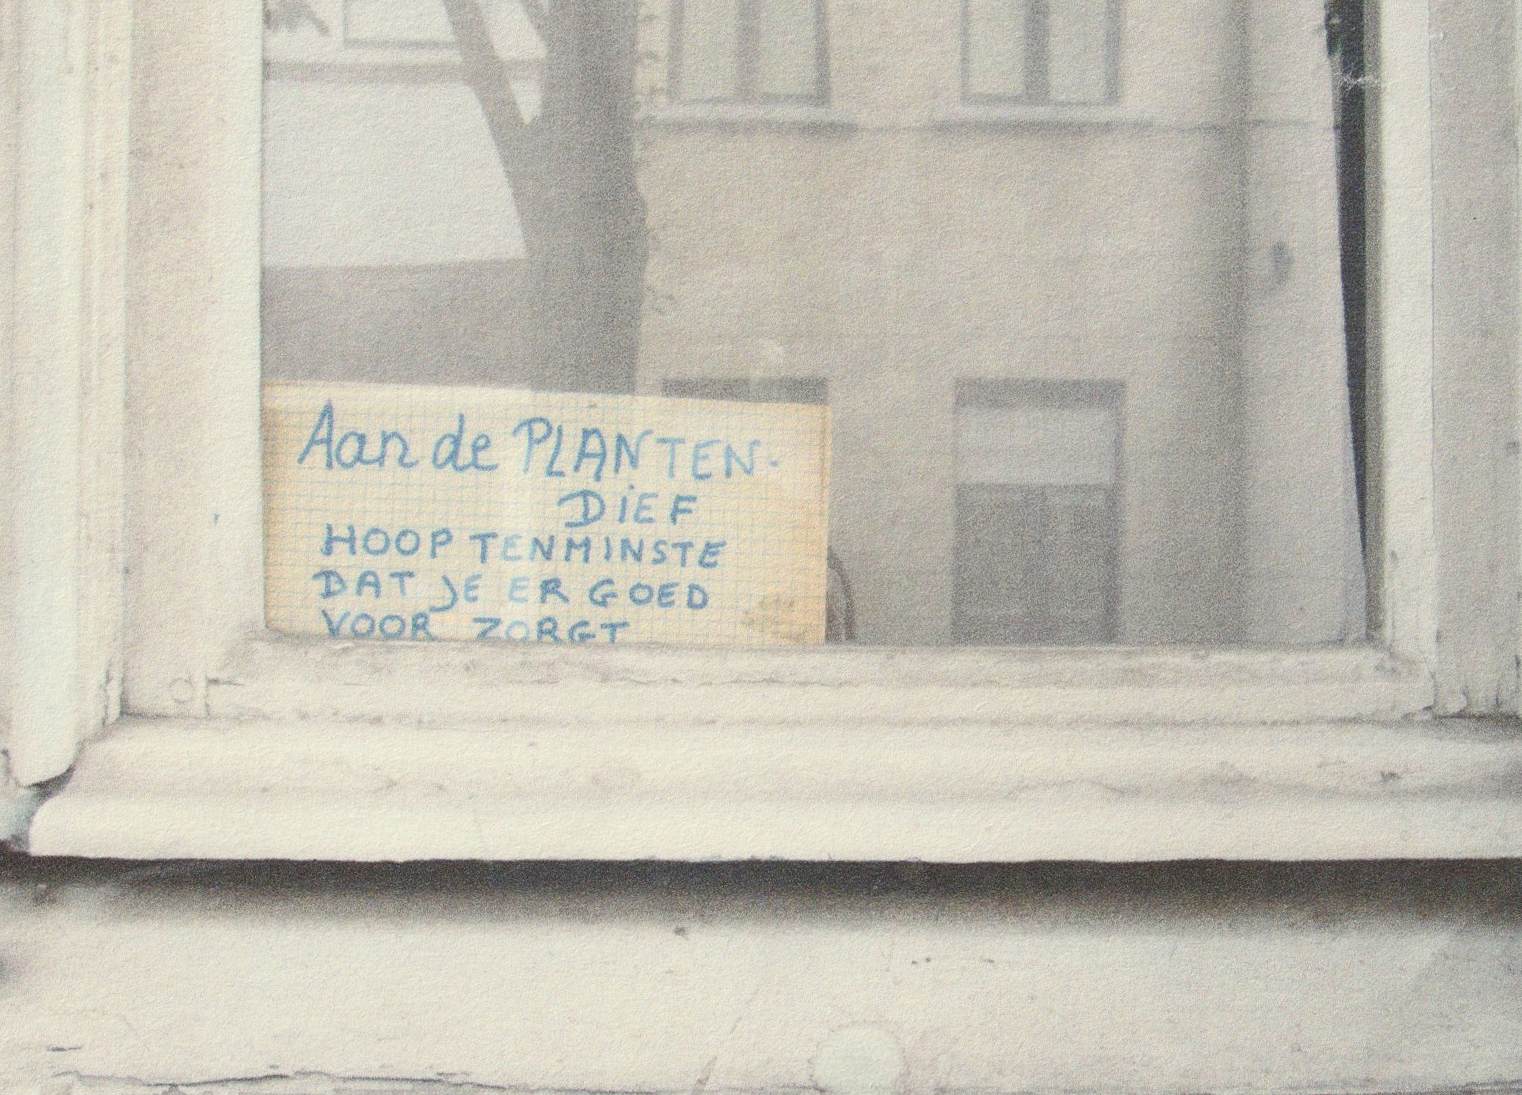 Aan de PLANTEN-
DIEF
HOOP TENMINSTE
DAT JE ER GOED
VOOR ZORGT